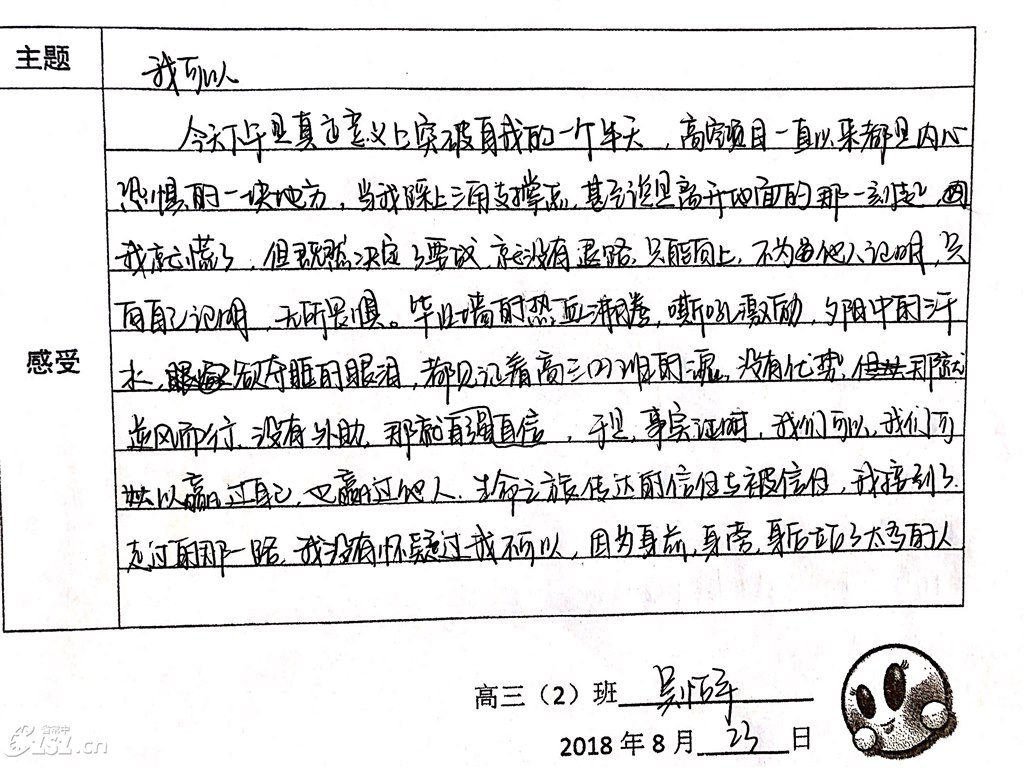 主题
我可以
今天下午是真正意义上突破自我的一个半天，高空项目一直以来都是内心
恐惧的一块地方，当我踩上三角支撑点，甚至说是离开地面的那一刻起，
我就慌了，但既然决定了要做，就没有退路，只能向上，不为向他人证明，只
向自己证明，无所畏惧。毕业墙的热血沸腾，嘶吼激励，夕阳中的汗
水，欲夺眶的眼泪，都见证着高三(2)班的魂。没有优势，那就
逆风而行，没有外助，那就自强自信，于是，事实证明，我们可以，我们可
以赢过自己，也赢过他人。生命之旅传达的信任与被信任，我接到了
走过的那一路，我没有怀疑过我不可以，因为身前，身旁，身后站了太多的人
感受
高三（2）班
2018年8月23日
.cn